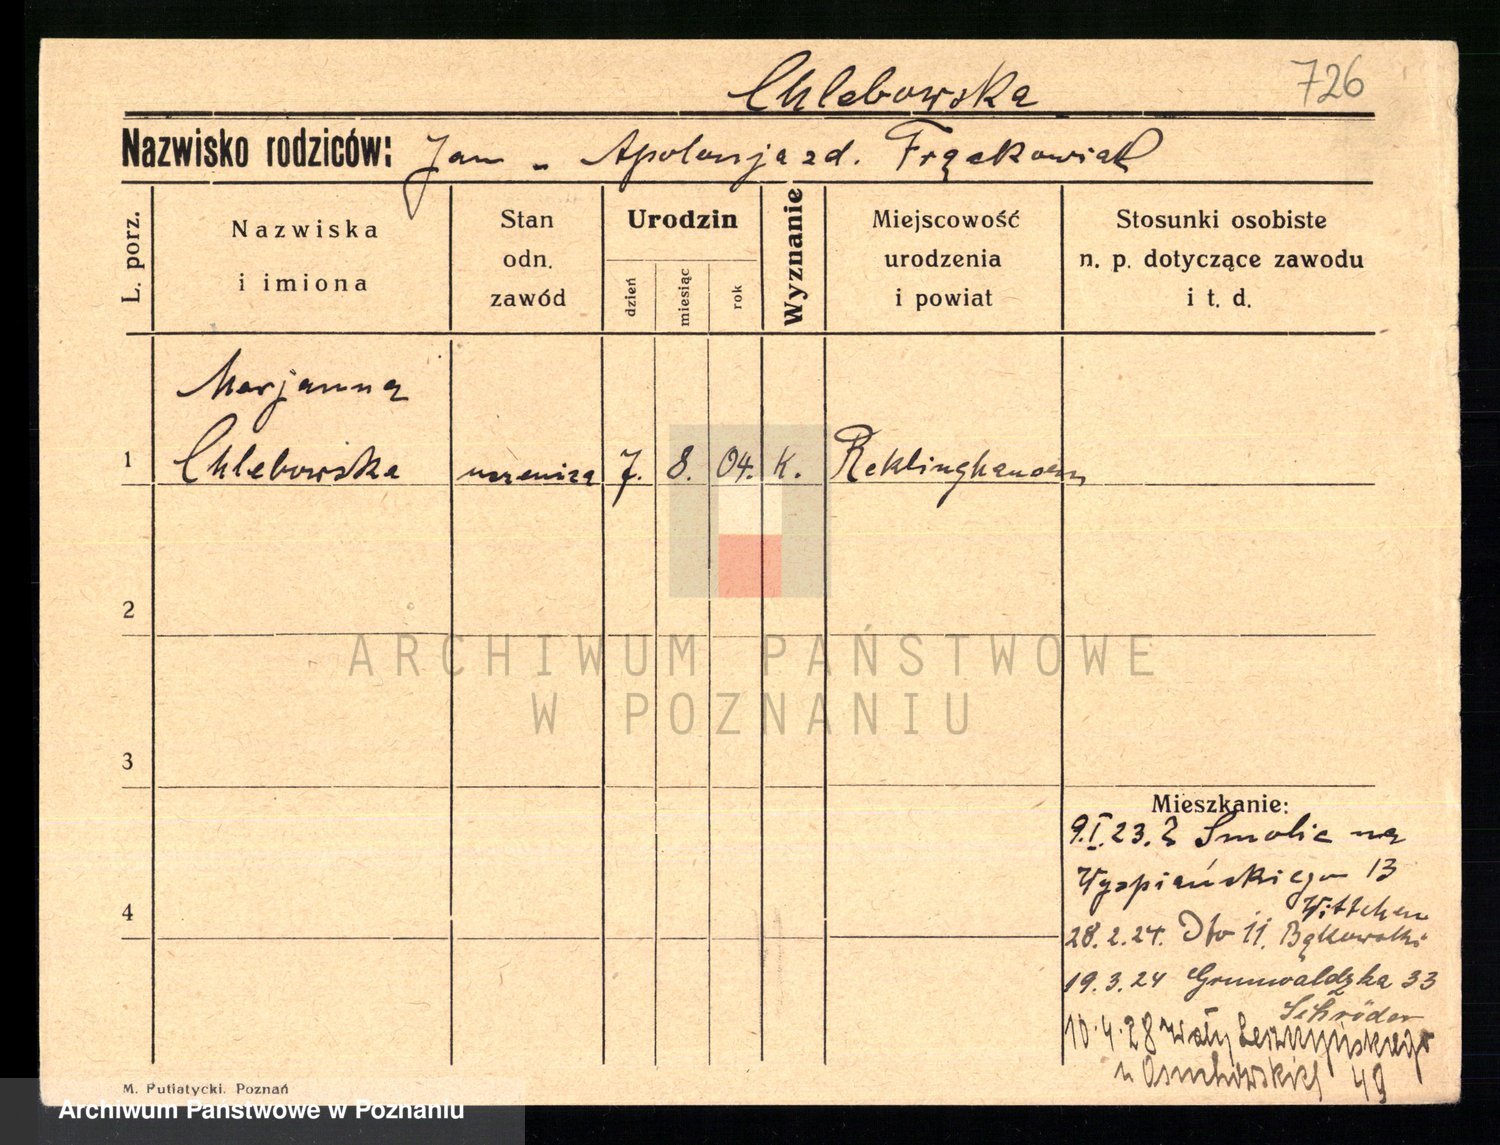 Chlebowska 726
Nazwisko rodziców: Jan - Apolonja zd. Frąckowiak
L. porz.
Nazwiska
i imiona
Stan
odn.
zawód
Urodzin
dzień
miesiąc
rok
Wyznanie
Miejscowość
urodzenia
i powiat
Stosunki osobiste
n. p. dotyczące zawodu
i t. d.
Marjanna
1 Chlebowska uczenica 7. 8. 04. k. Reklinghausen
2
3
4
Mieszkanie:
9.I.23. z Smolic na
Wyspiańskiego 13
Wittchen
28.2.24. Dto 11. Bąkowski
19.3.24 Grunwaldzka 33
Schröder
10.4.28 Wały Leszczyńskiego
u Osuchowskich 49
ARCHIWUM PAŃSTWOWE
W POZNANIU
M. Putiatycki. Poznań
Archiwum Państwowe w Poznaniu